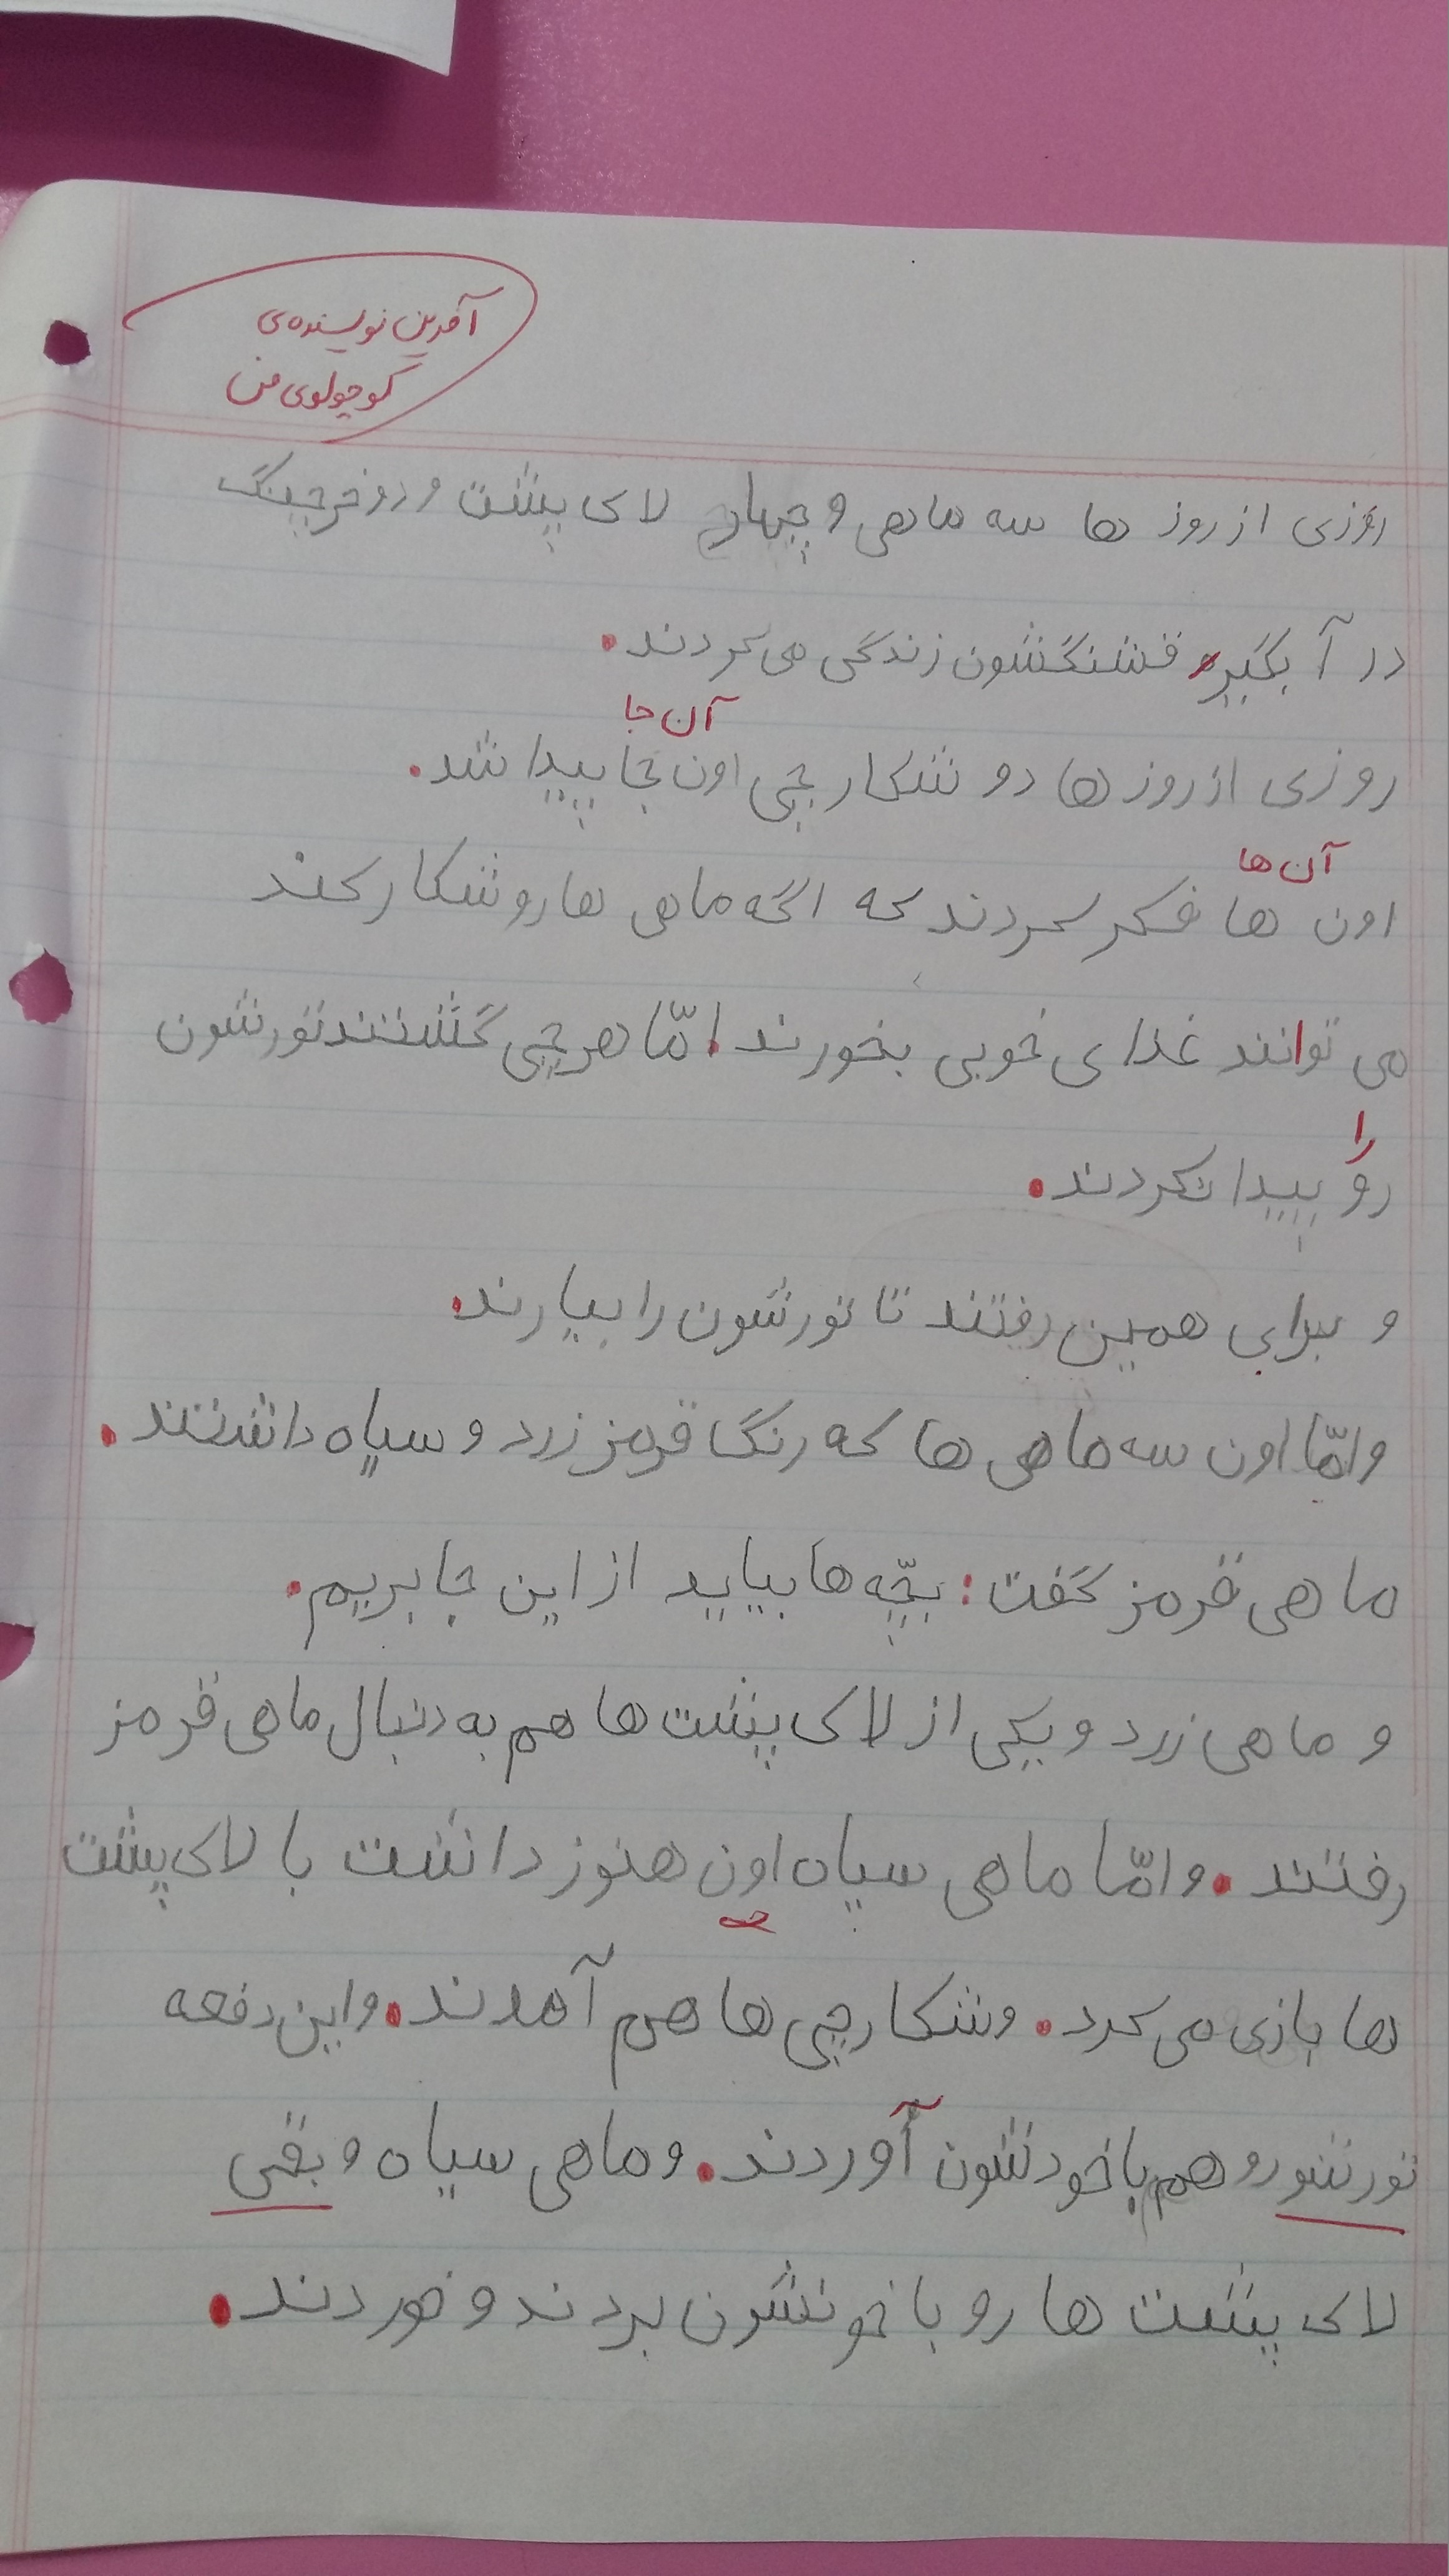 آفرین نویسنده‌ی
کوچولوی من
روزی از روز ها سه ماهی و چهار لای پشت و دو خرچنگ
در آبگیر قشنگشون زندگی می کردند.
آن جا
روزی از روز ها دو شکارچی اون جا پیدا شد.
آن ها
اون ها فکر کردند که اگه ماهی ها رو شکار کنند
می توانند غذای خوبی بخورند. امّا هر چی گشتند تورشون
را
رو پیدا نکردند.
و برای همین رفتند تا تورشون را بیارند.
و امّا اون سه ماهی ها که رنگ قرمز زرد و سیاه داشتند.
ماهی قرمز گفت: بچّه ها بیایید از این جا بریم.
و ماهی زرد و یکی از لای پشت ها هم به دنبال ماهی قرمز
رفتند. و امّا ماهی سیاه اون هنوز داشت با لای پشت
ها بازی می کرد. و شکارچی ها هم آمدند. و این دفعه
تورشو رو هم با خودشون آوردند. و ماهی سیاه و بقی
لای پشت ها رو با خونشون بردند و خوردند.